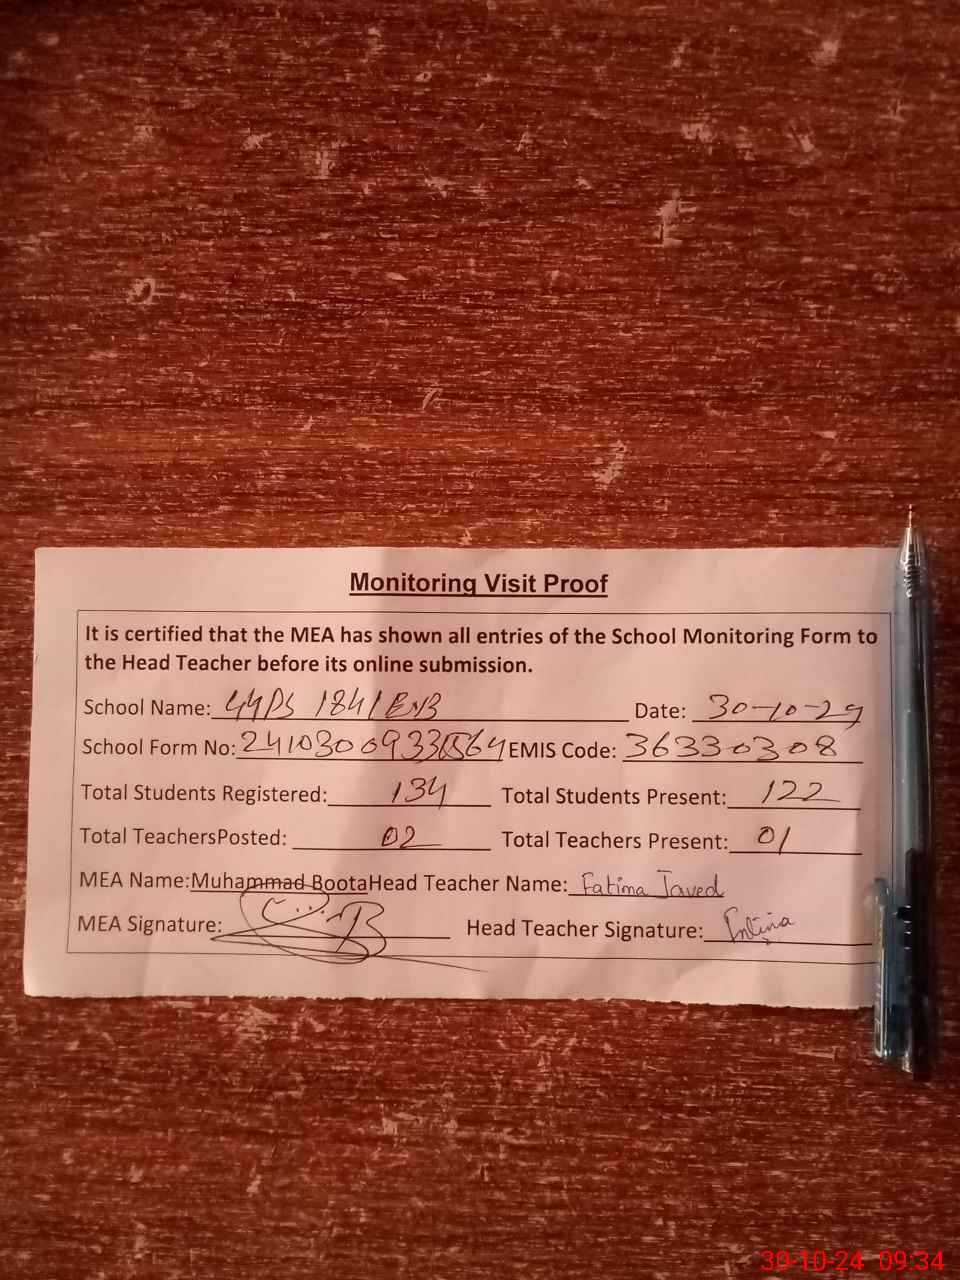 Monitoring Visit Proof
It is certified that the MEA has shown all entries of the School Monitoring Form to
the Head Teacher before its online submission.
School Name: GGPS 184/EB Date: 30-10-24
School Form No: EMIS Code: 36330308
Total Students Registered: 134 Total Students Present: 122
Total TeachersPosted: 02 Total Teachers Present: 01
MEA Name:Muhammad BootaHead Teacher Name: Fatima Javed
MEA Signature: Head Teacher Signature:
30-10-24 09:34